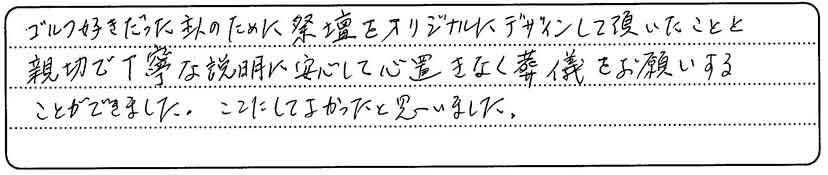 ゴルフ好きだった主人のために祭壇をオリジナルにデザインして頂いたことと
親切で丁寧な説明に安心して心置きなく葬儀をお願いする
ことができました。ここにしてよかったと思いました。